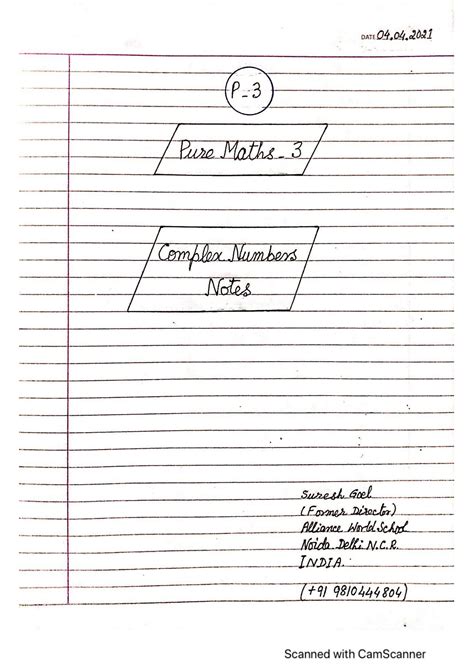 DATE: 04.04.2021
P-3
Pure Maths-3
Complex Numbers
Notes
Suresh Goel
(Former Director)
Alliance World School
Noida Delhi N.C.R.
INDIA.
(+91 9810444804)
Scanned with CamScanner